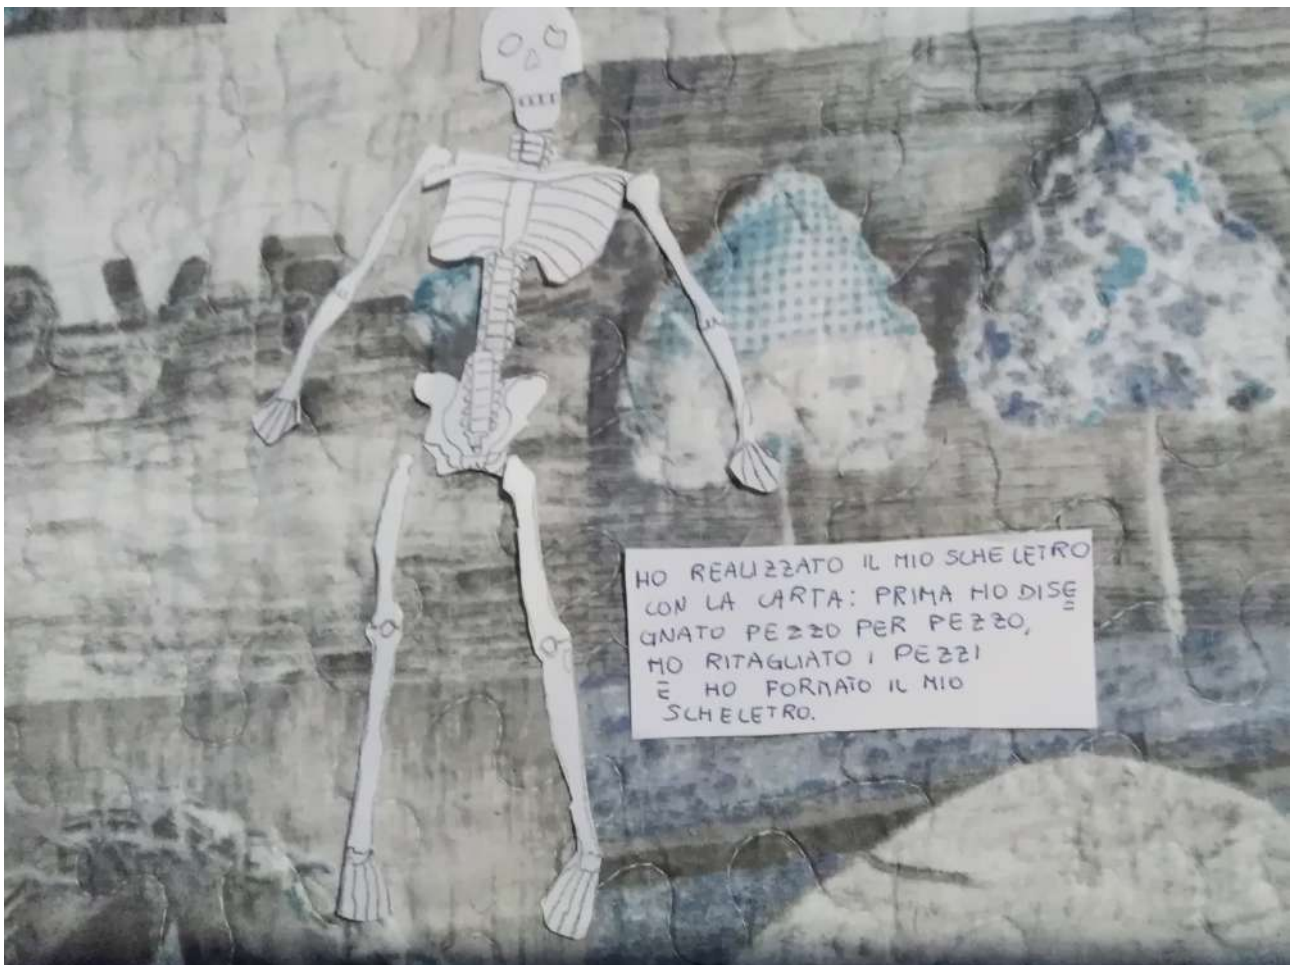 HO REALIZZATO IL MIO SCHELETRO
CON LA CARTA: PRIMA HO DISE
GNATO PEZZO PER PEZZO,
HO RITAGLIATO I PEZZI
E HO FORMATO IL MIO
SCHELETRO.